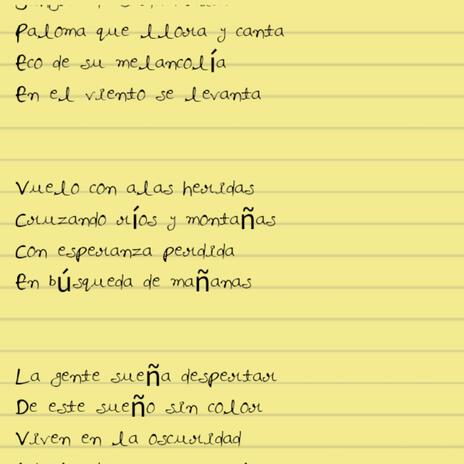 Paloma que llora y canta
Eco de su melancolía
En el viento se levanta
Vuelo con alas heridas
Cruzando ríos y montañas
Con esperanza perdida
En búsqueda de mañanas
La gente sueña despertar
De este sueño sin color
Viven en la oscuridad